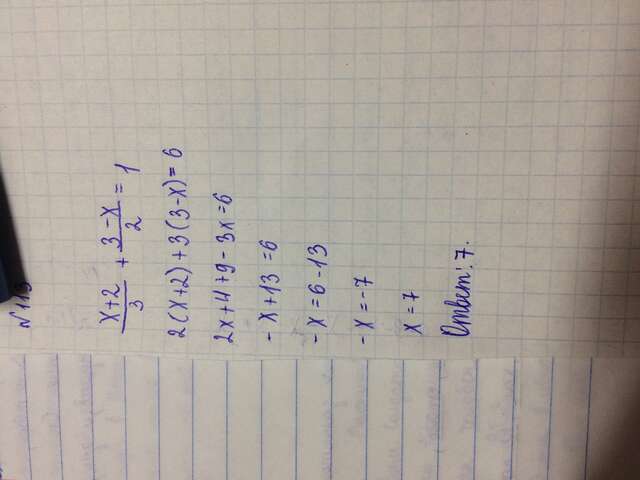 №113
x+2/3 + 3-x/2 = 1
2(x+2)+3(3-x)= 6
2x+4+9-3x=6
-x+13=6
-x=6-13
-x=-7
x=7
Ответ: 7.